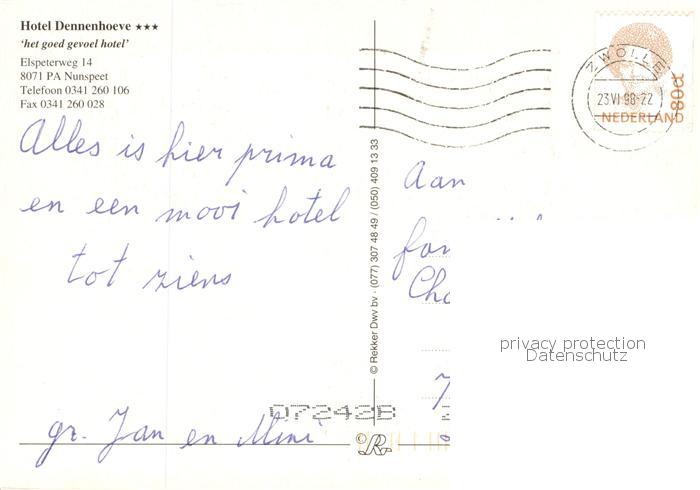 Hotel Dennenhoeve ★★★
'het goed gevoel hotel'
Elspeterweg 14
8071 PA Nunspeet
Telefoon 0341 260 106
Fax 0341 260 028
Alles is hier prima
en een mooi hotel
tot ziens
gr. Jan en Mini
© Rekker Dwv bv - (077) 307 48 49 / (050) 409 13 33
072428
ZWOLLE
23 VI 98-22
NEDERLAND
80ct
Aan
privacy protection
Datenschutz